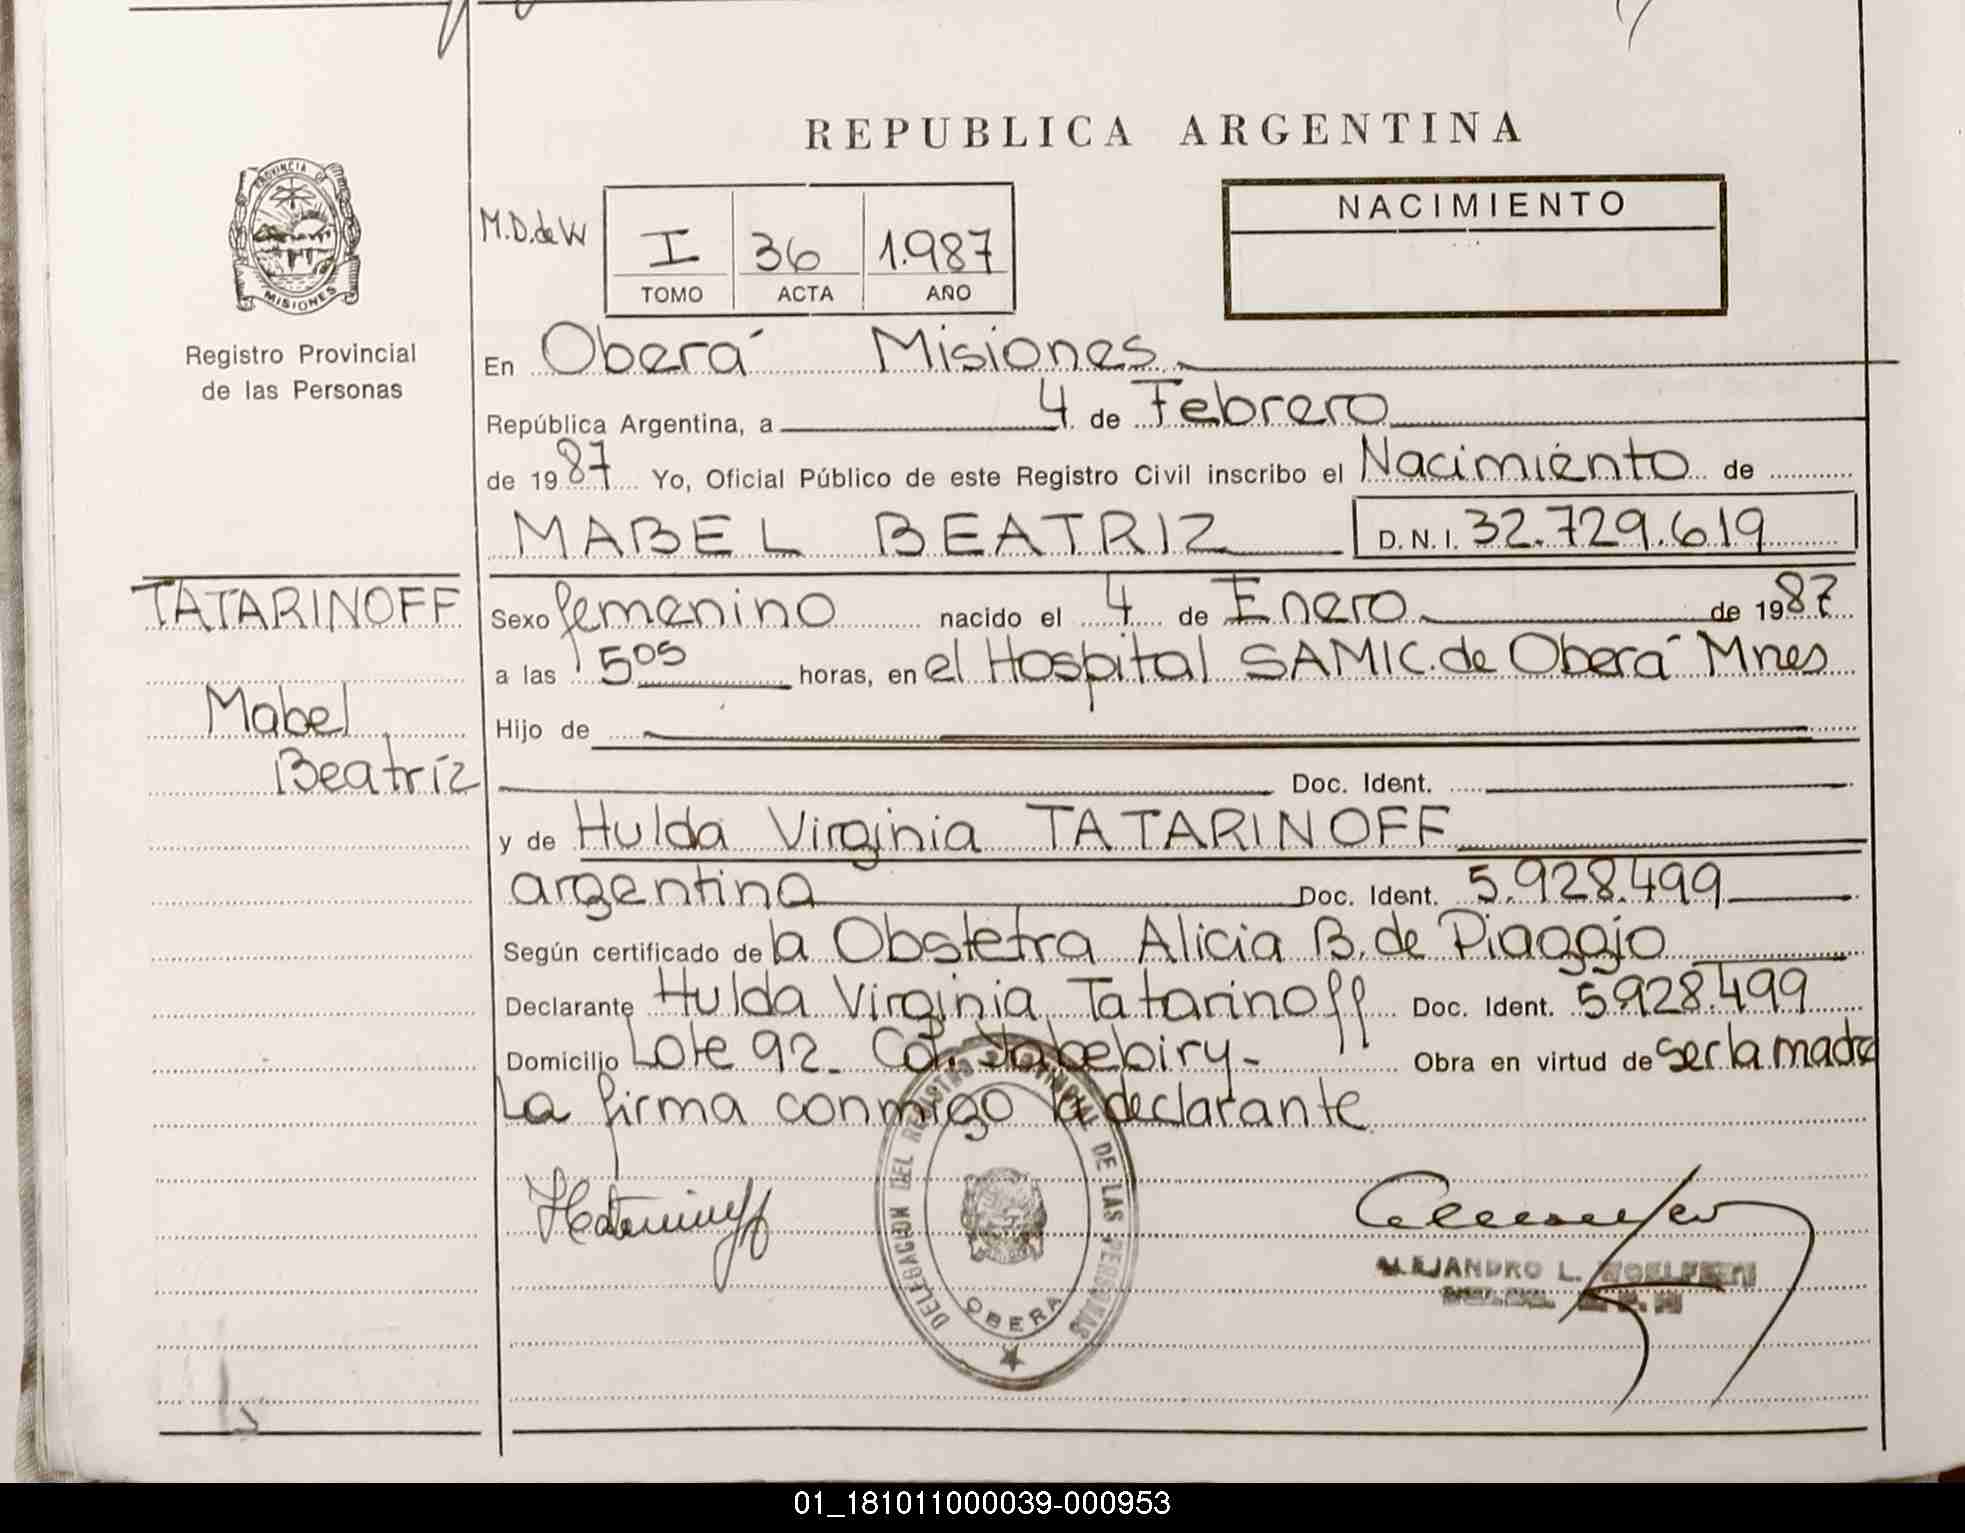 REPUBLICA ARGENTINA
PROVINCIA DE
MISIONES
Registro Provincial
de las Personas
M.D. de W
I 36 1.987
TOMO ACTA AÑO
NACIMIENTO
En Oberá Misiones
República Argentina, a 4 de Febrero
de 1987 Yo, Oficial Público de este Registro Civil inscribo el Nacimiento de
MABEL BEATRIZ D.N.I. 32.729.619
TATARINOFF
Mabel
Beatríz
Sexo femenino nacido el 4 de Enero de 1987
a las 5 05 horas, en el Hospital SAMIC. de Oberá Mnes
Hijo de
Doc. Ident.
y de Hulda Virginia TATARINOFF
argentina Doc. Ident. 5.928.499
Según certificado de la Obstetra Alicia B. de Piaggio
Declarante Hulda Virginia Tatarinoff Doc. Ident. 5.928.499
Domicilio Lote 92_ Col. Yabebiry- Obra en virtud de ser la madre
La firma conmigo la declarante
DELEGACION DEL REGISTRO PROVINCIAL DE LAS PERSONAS
OBERA
ALEJANDRO L.
01_181011000039-000953